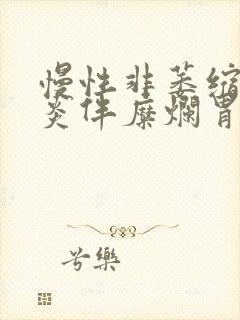 慢性非萎缩
炎伴糜烂胃
兮樂